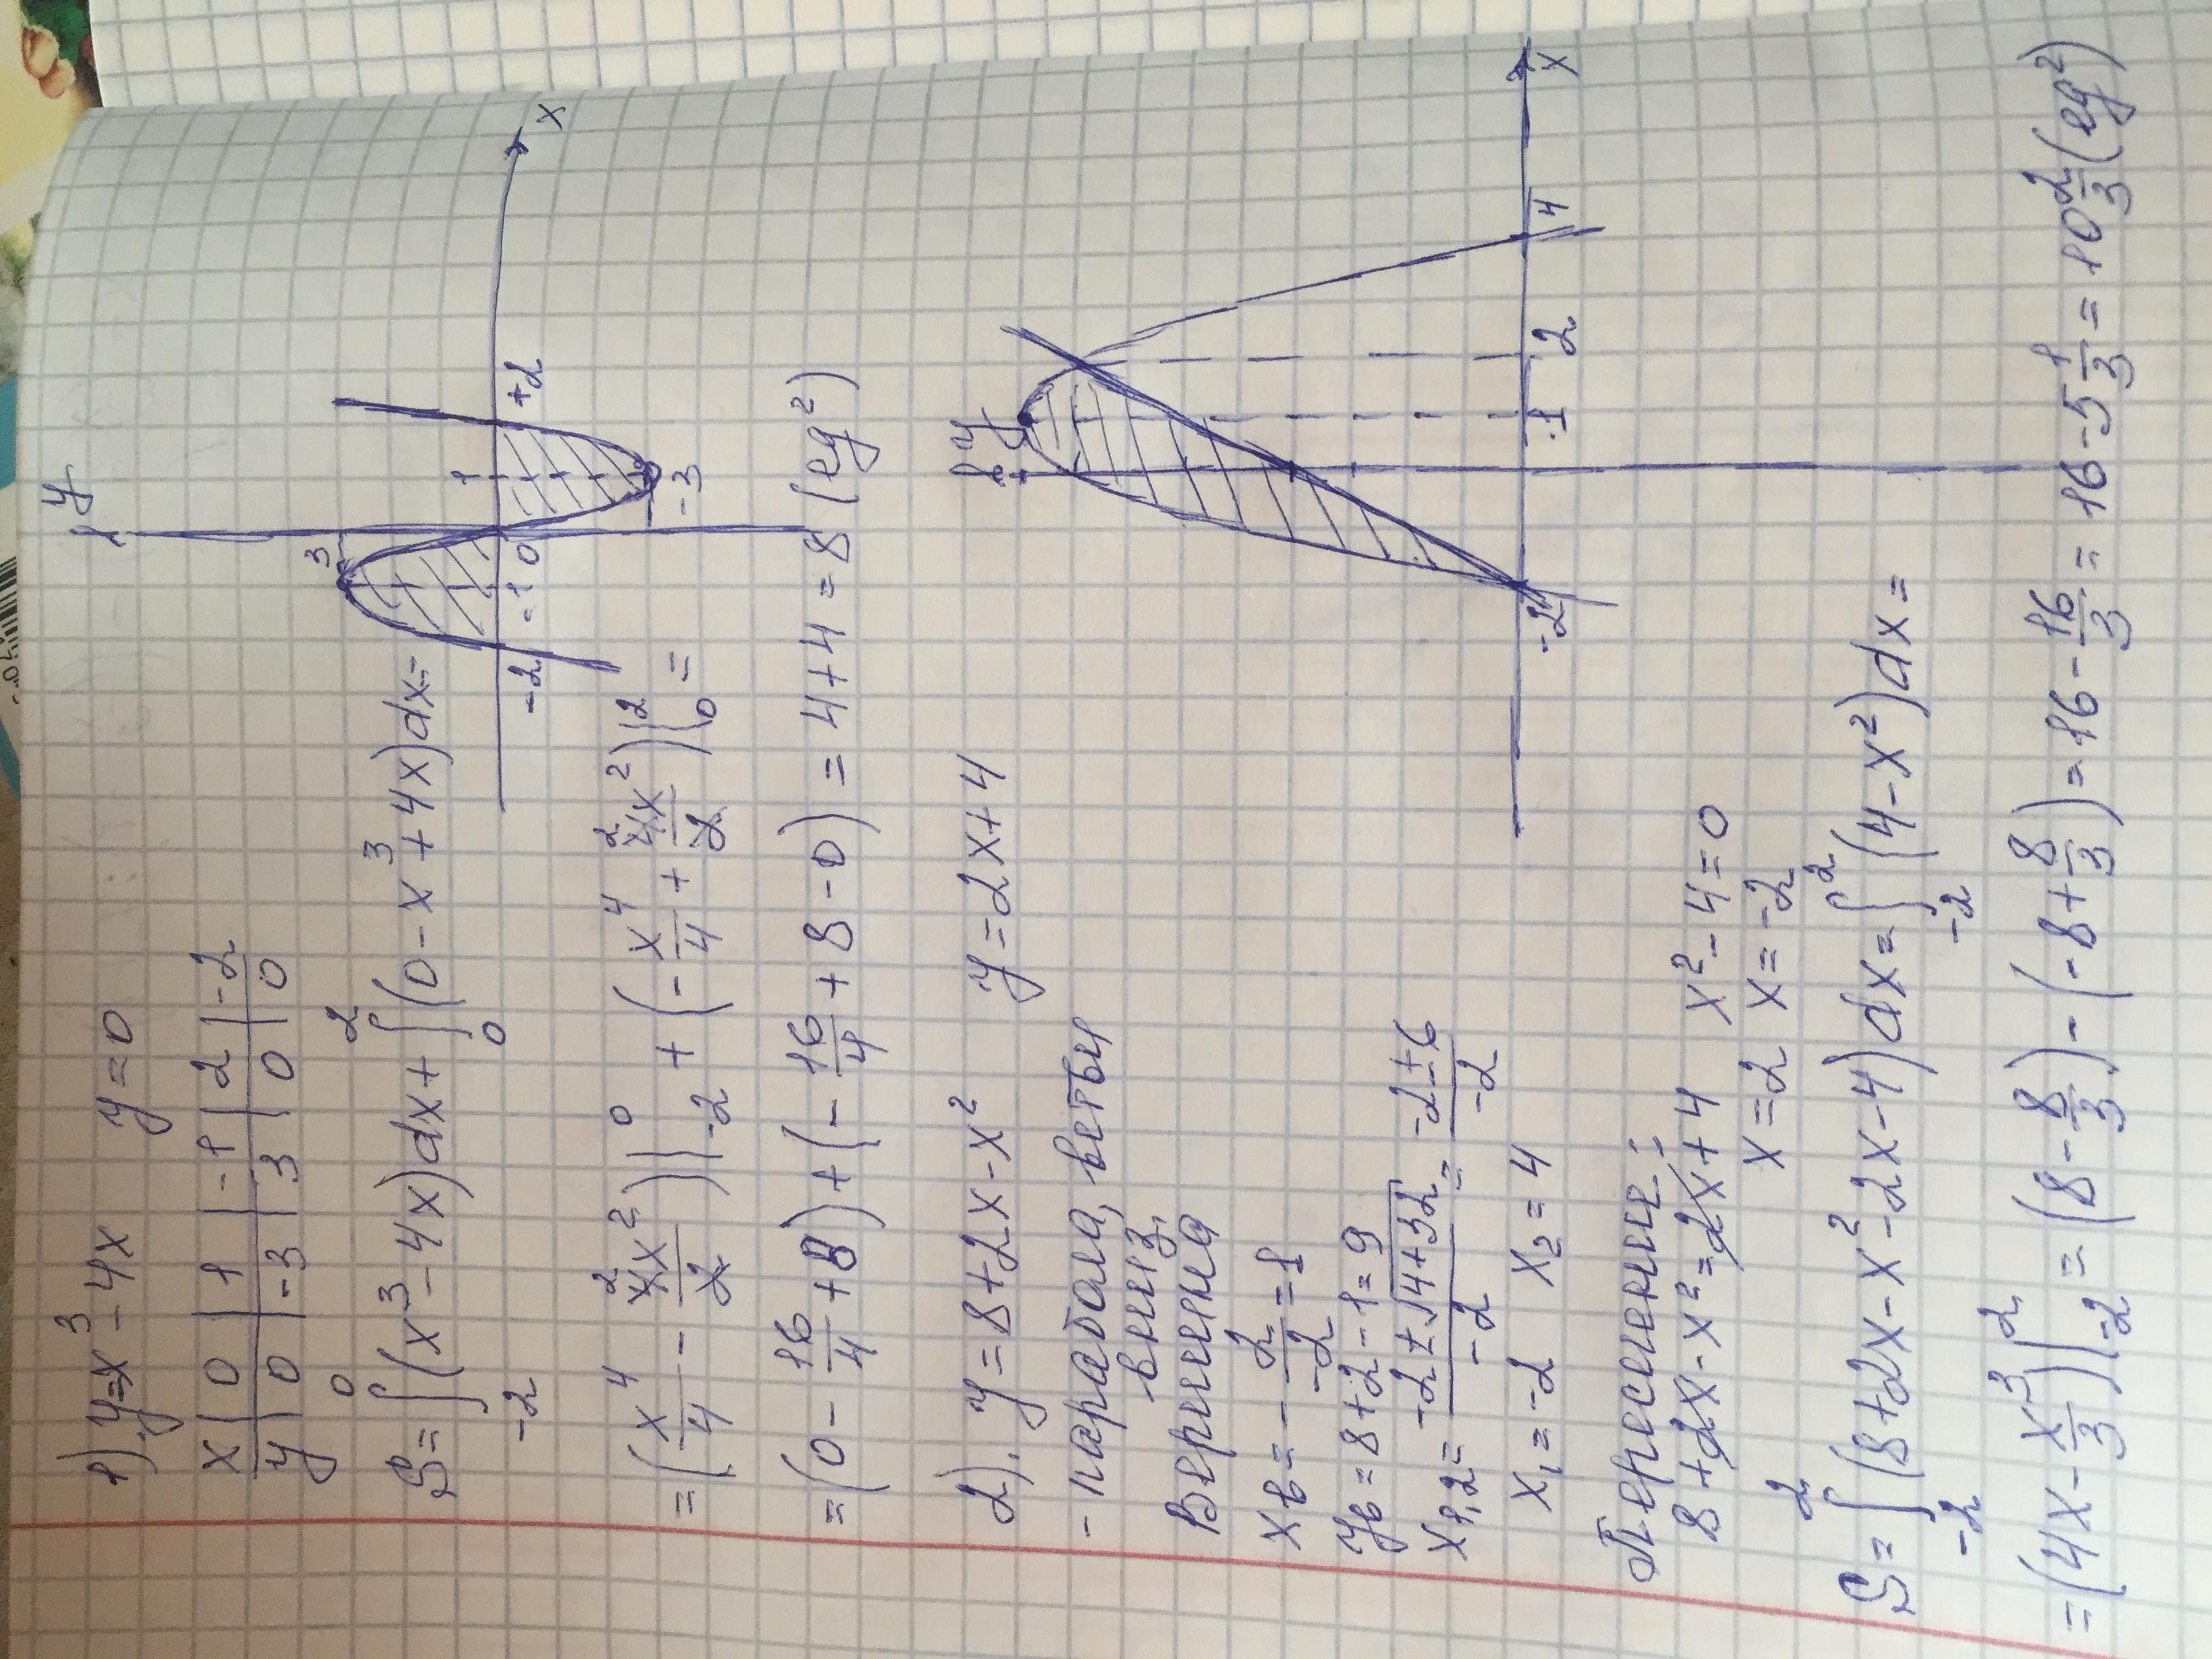 1) y=x³-4x y=0
x | 0 | 1 | -1 | 2 | -2
y | 0 | -3 | 3 | 0 | 0
y
3
1
-2 -1 0 +2 x
-3
S=∫₋₂⁰(x³-4x)dx+∫₀²(0-x³+4x)dx=
=(x⁴/4 - 4x²/2)|₋₂⁰ + (-x⁴/4 + 4x²/2)|₀² =
=(0-16/4+8)+(-16/4+8-0)=4+4=8 (ед²)
2). y=8+2x-x² y=2x+4
- парабола, ветви
вниз,
Вершина
xв=-2/-2=1
yв=8+2-1=9
x1,2=-2±√4+32/-2=-2±6/-2
x₁=-2 x₂=4
y
-2 1 2 4 x
Пересечение:
8+2x-x²=2x+4 x²-4=0
x=2 x=-2
S=∫₋₂²(8+2x-x²-2x-4)dx=∫₋₂²(4-x²)dx=
=(4x-x³/3)|₋₂²=(8-8/3)-(-8+8/3)=16-16/3=16-5 1/3=10 2/3(ед²)